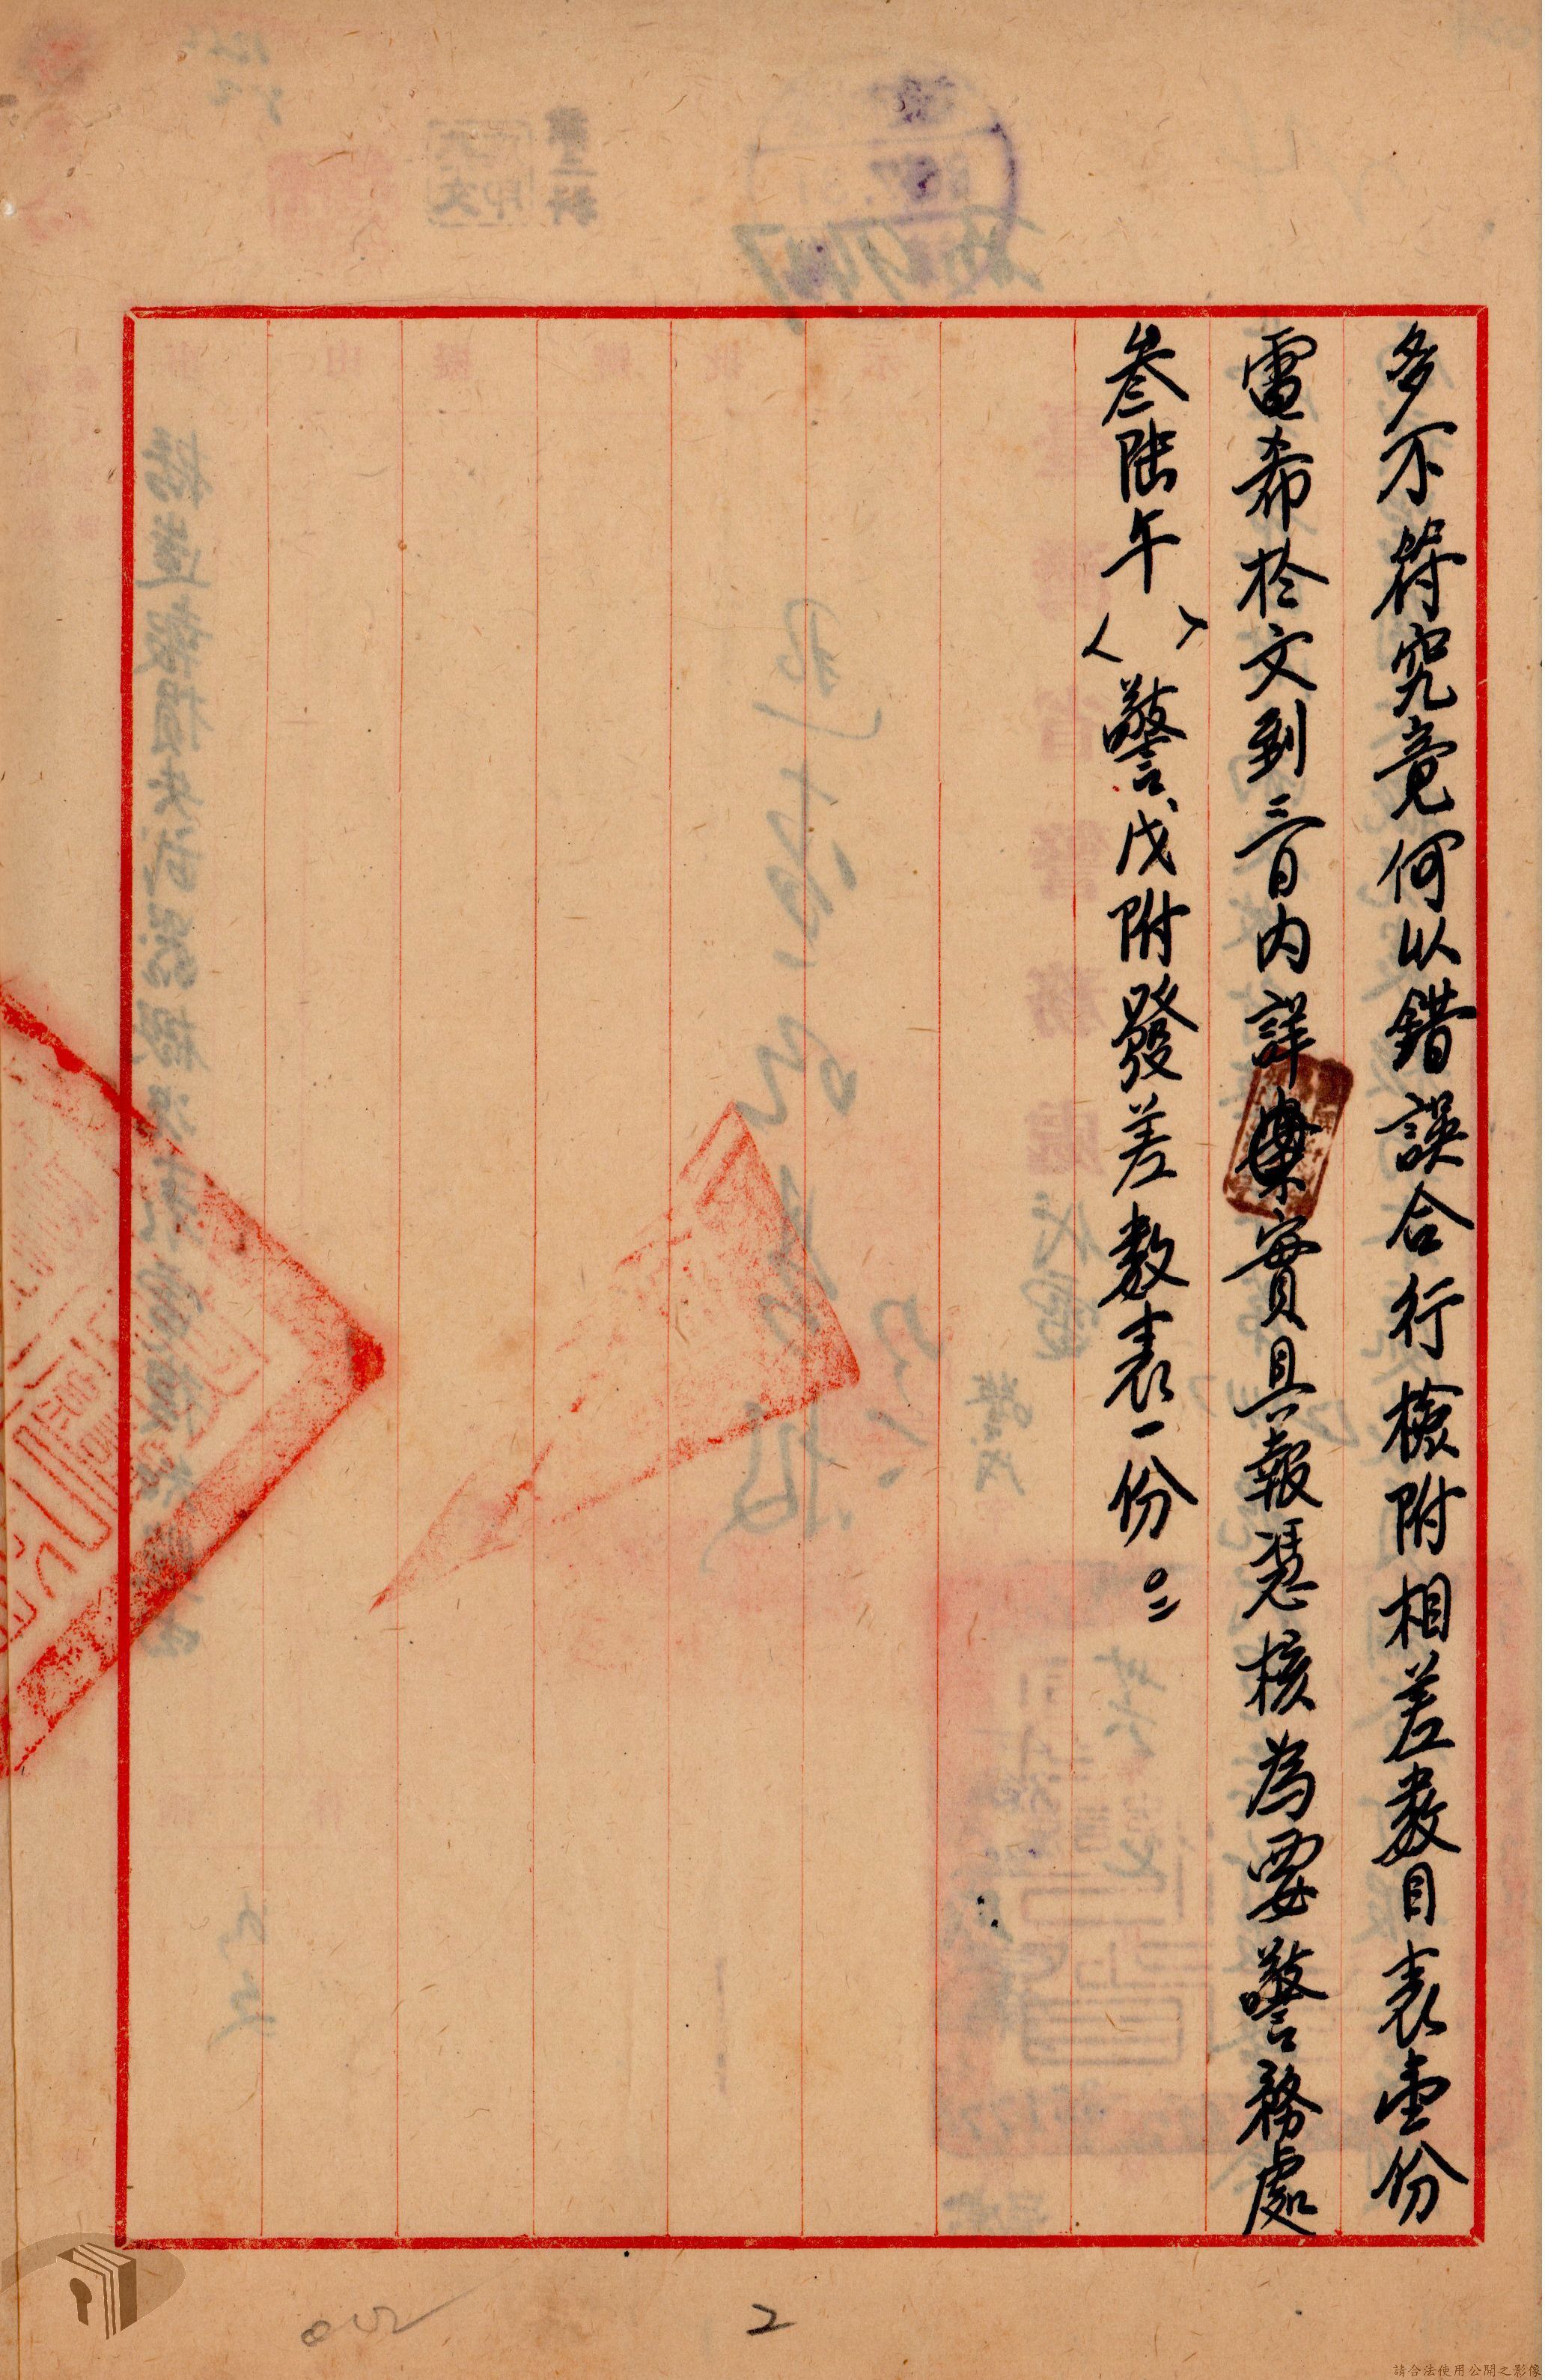 多不符究竟何以錯誤合行檢附相差數目表壹份
電希於文到三日內詳實具報憑核為要警務處
叁陆午〈 〉警戊附發差數表一份。
2
請合法使用公開之影像